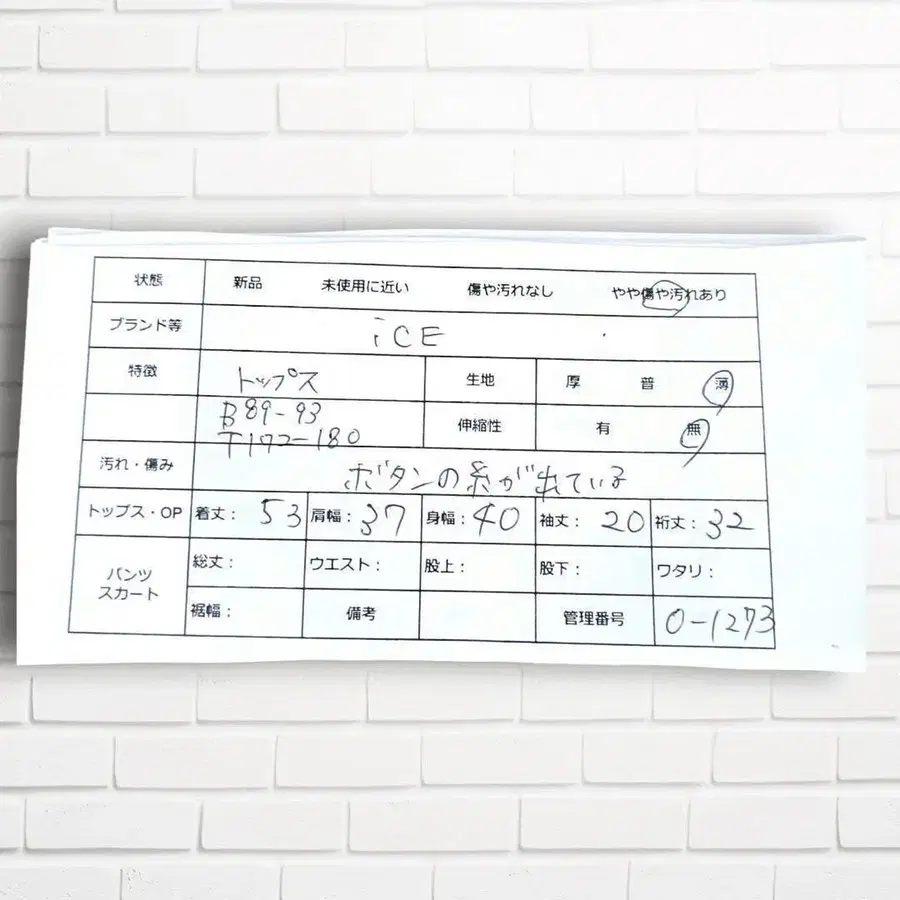 状態 新品 未使用に近い 傷や汚れなし やや傷や汚れあり
ブランド等 iCE
特徴 トップス 生地 厚 普 薄
B89-93
T172-180 伸縮性 有 無
汚れ・傷み ボタンの糸が出ている
トップス・OP 着丈: 53 肩幅: 37 身幅: 40 袖丈: 20 裄丈: 32
パンツ
スカート
総丈: ウエスト: 股上: 股下: ワタリ:
裾幅: 備考 管理番号 0-1273